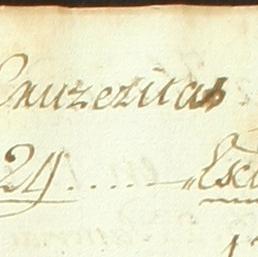 Cruzeritas
29.....„Esc